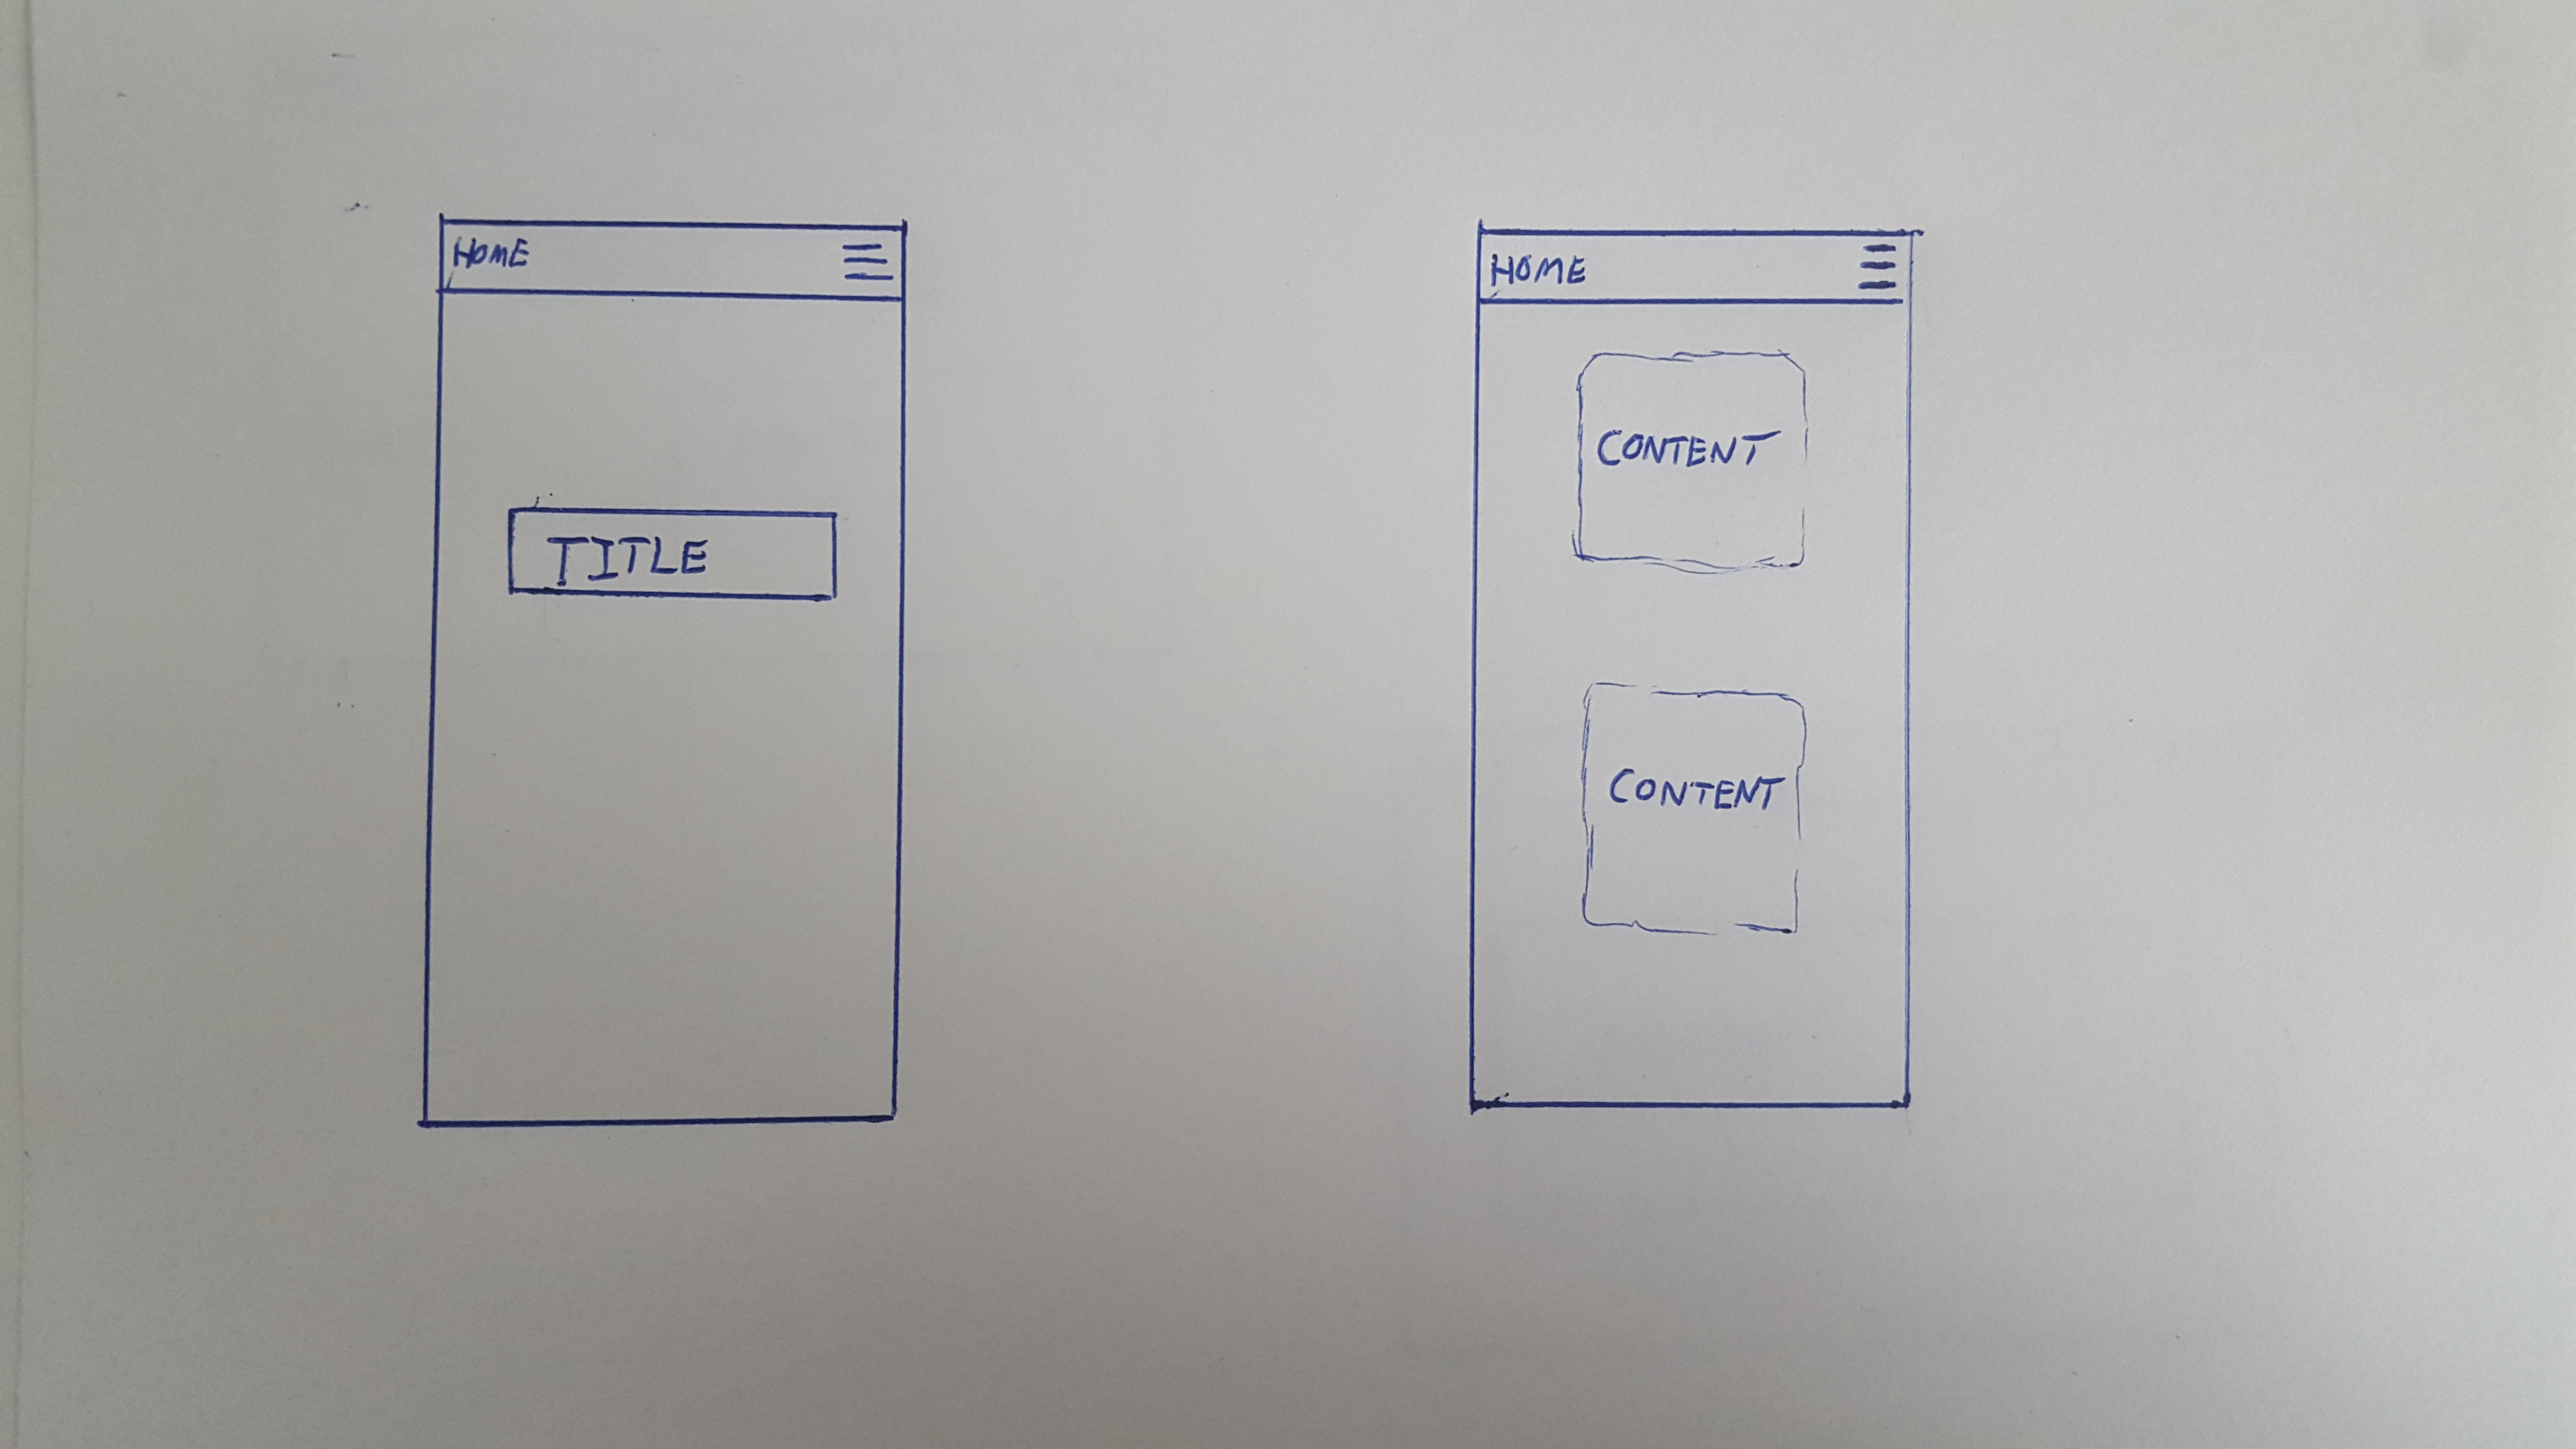 HOME
TITLE
HOME
CONTENT
CONTENT